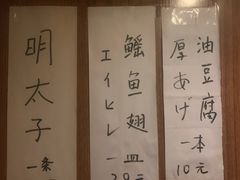 油豆腐
厚あげ
一本
10元
鰩鱼翅
エイヒレ
一皿
20元
明太子
一条